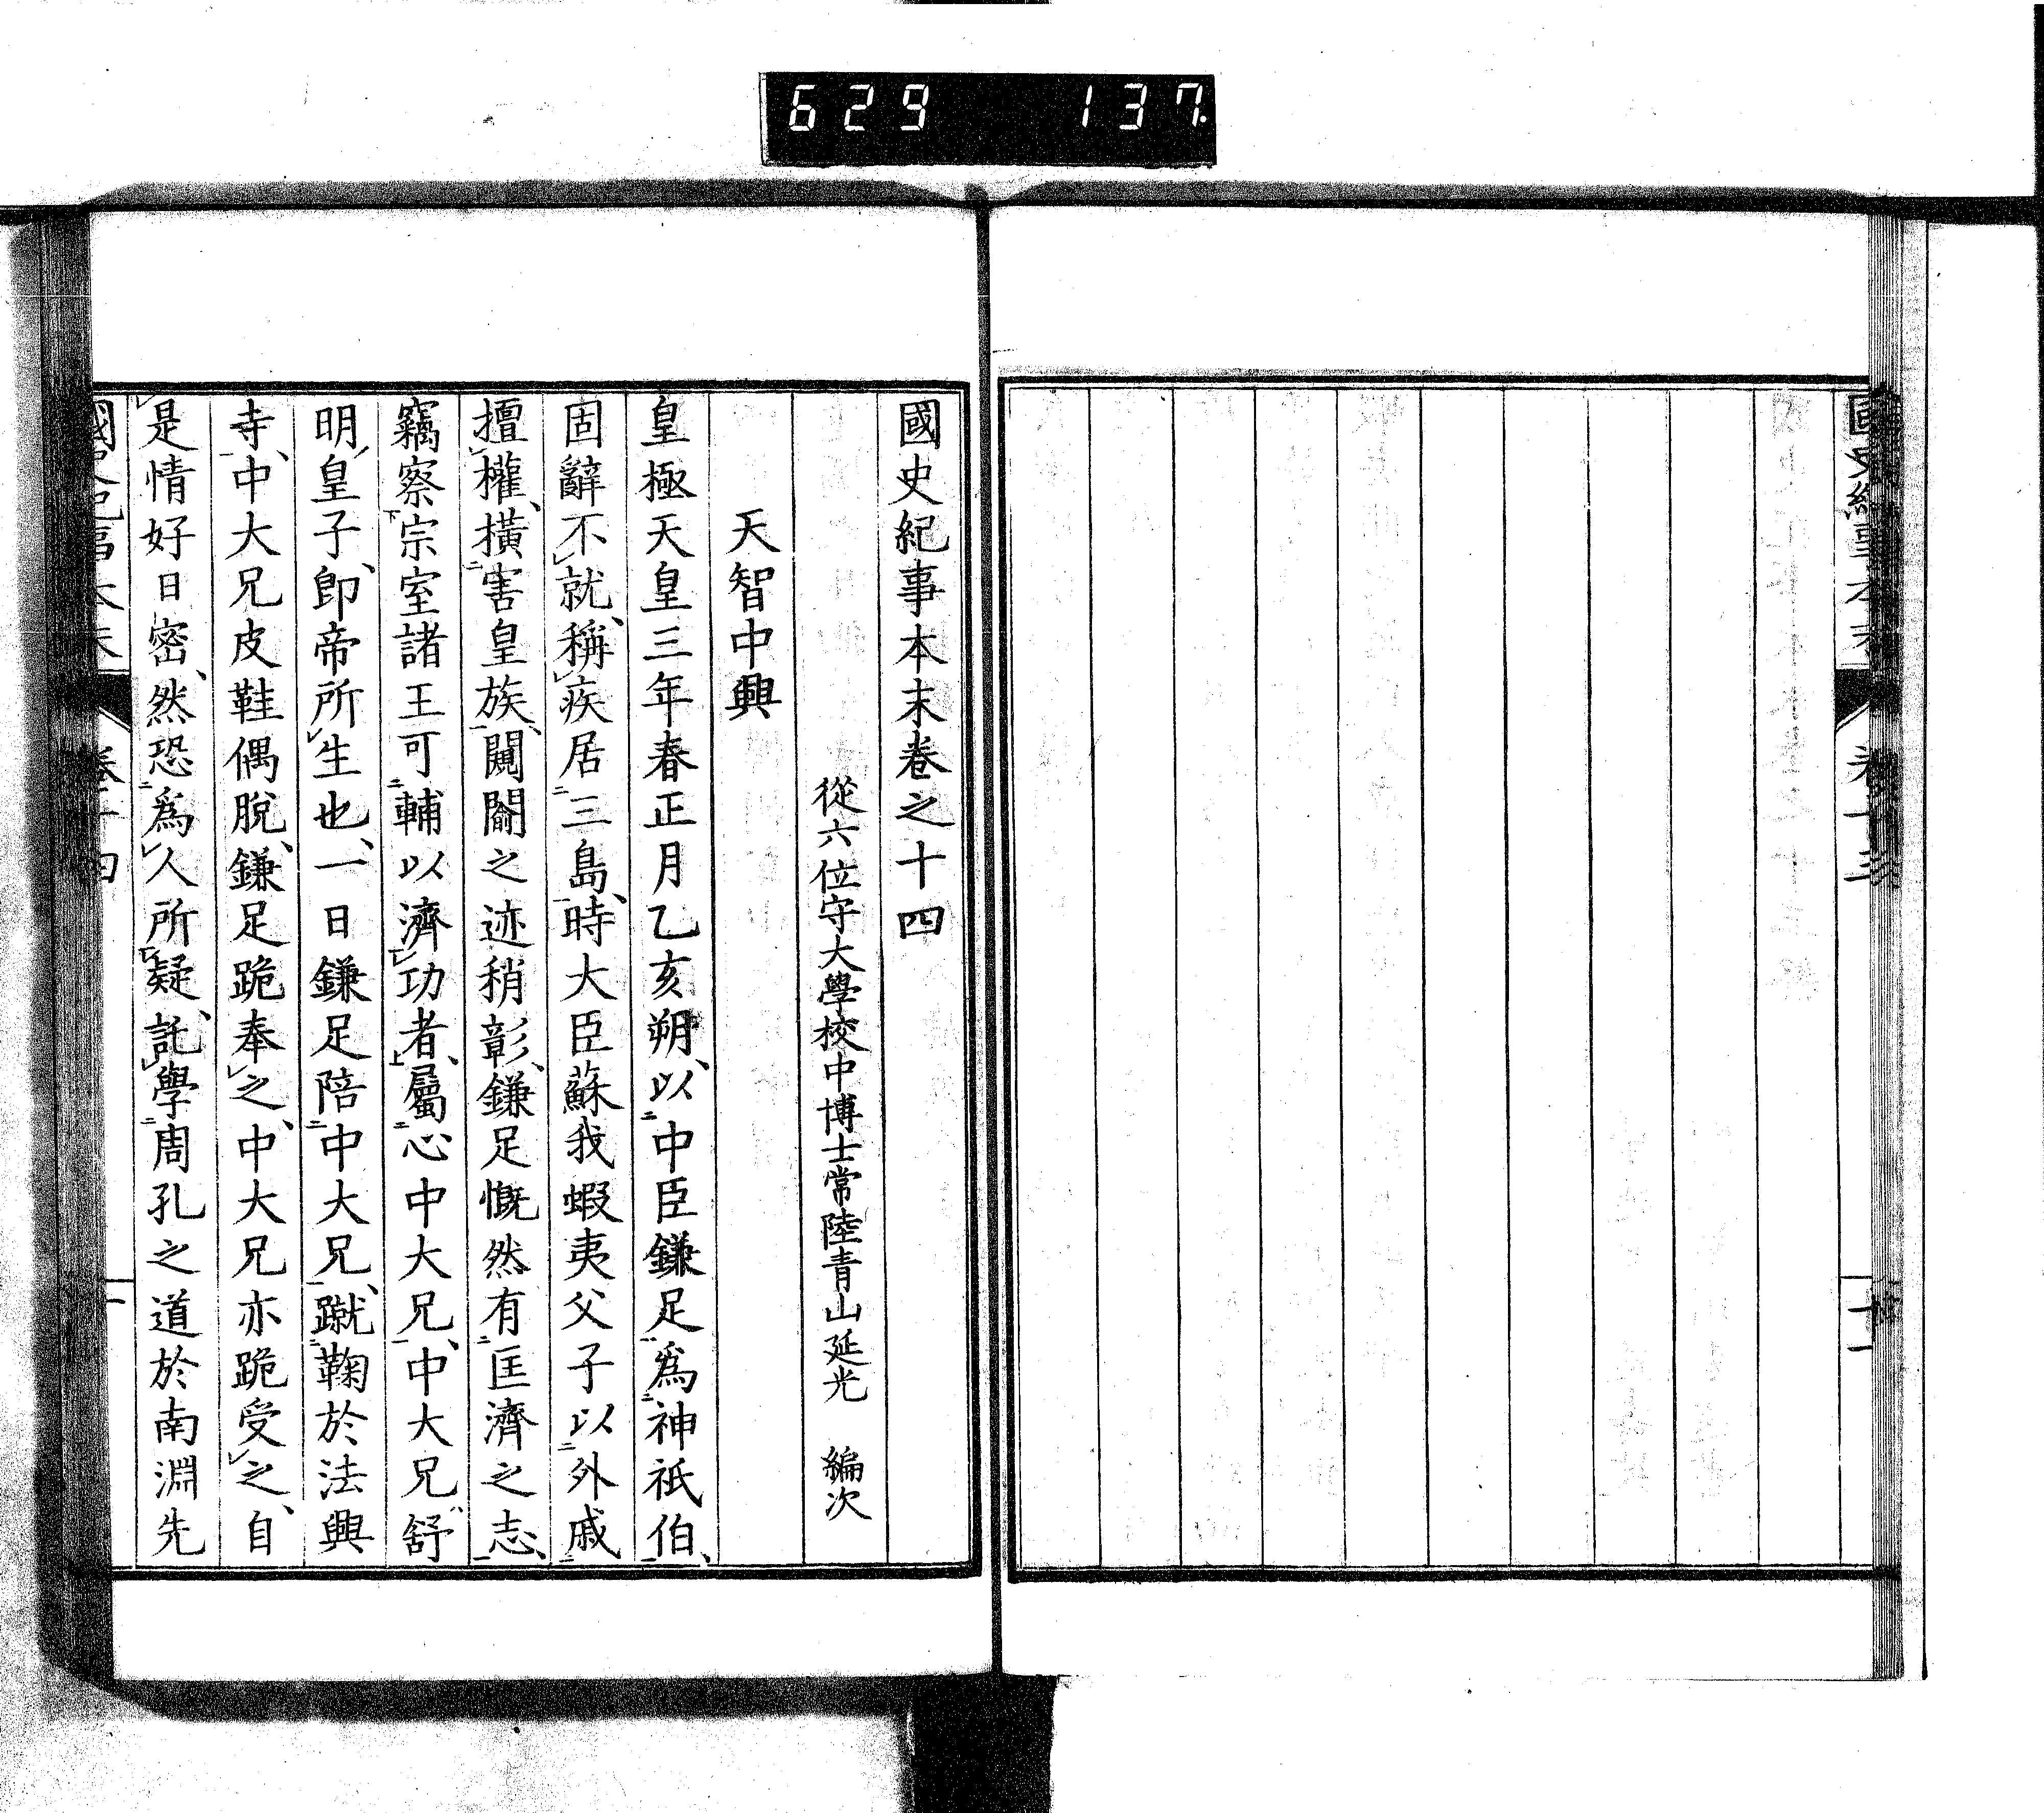 629 137
國史紀事本末卷之十四
從六位守大學校中博士常陸青山延光 編次
天智中興
皇極天皇三年春正月乙亥朔、以中臣鎌足爲神祇伯、
固辭不就、稱疾居三島、時大臣蘇我蝦夷父子以外戚
擅權、橫害皇族、闚闟之迹稍彰、鎌足慨然有匡濟之志、
竊察宗室諸王可輔以濟功者、屬心中大兄、中大兄、舒
明皇子、卽帝所生也、一日鎌足陪中大兄、蹴鞠於法興
寺、中大兄皮鞋偶脫、鎌足跪奉之、中大兄亦跪受之、自
是情好日密、然恐爲人所疑、託學周孔之道於南淵先